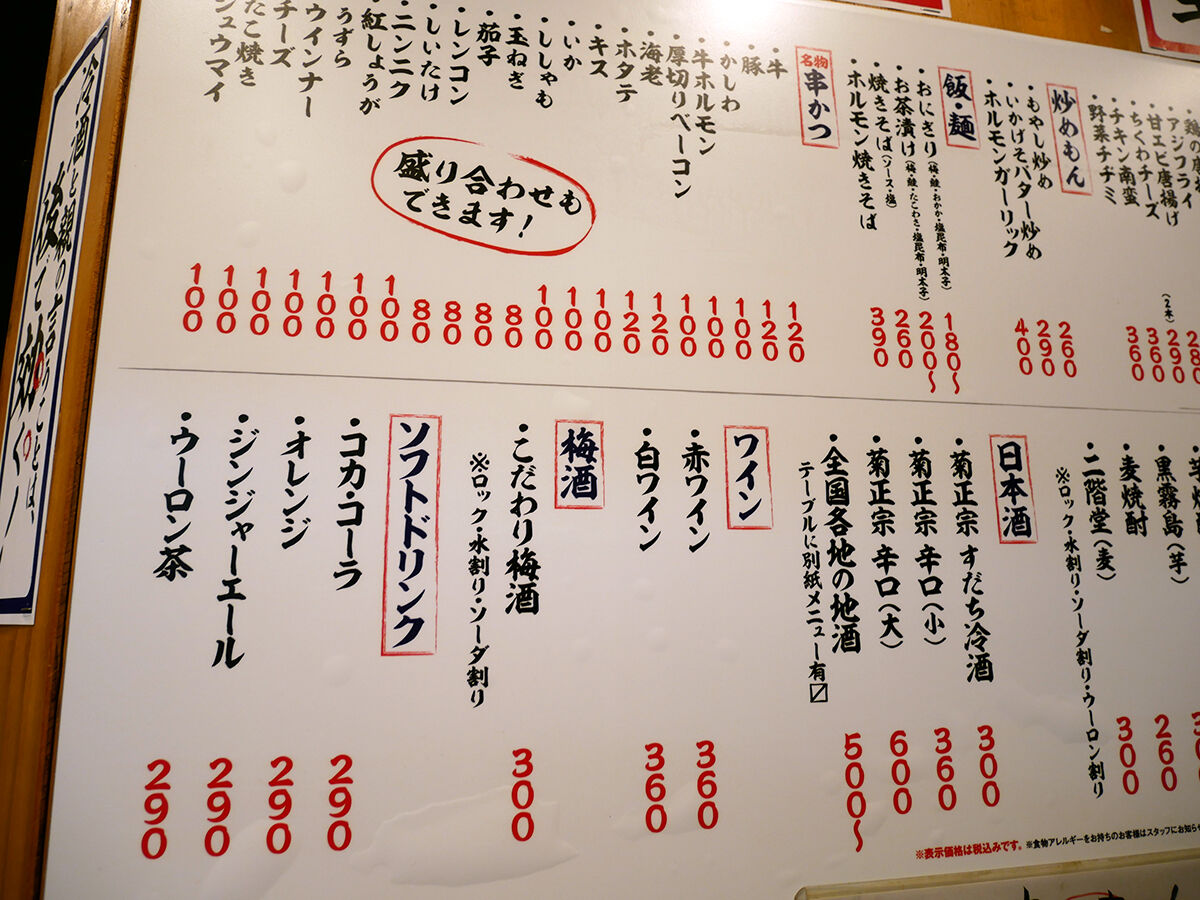 ・アジフライ
・甘エビ唐揚げ
・ちくわチーズ
(2本)
・チキン南蛮
・野菜チヂミ
280
290
360
360
炒めもん
・もやし炒め 260
・いかげそバター炒め 290
・ホルモンガーリック 400
飯・麺
・おにぎり(梅・鮭・おかか・塩昆布・明太子) 180〜
・お茶漬け(梅・鮭・たこわさ・塩昆布・明太子) 200〜
・焼きそば(ソース・塩) 260
・ホルモン焼きそば 390
名物 串かつ
・牛 120
・豚 120
・かしわ 100
・牛ホルモン 100
・厚切りベーコン 100
・海老 120
・ホタテ 120
・キス 100
・いか 100
・ししゃも 100
・玉ねぎ 80
・茄子 80
・レンコン 80
・しいたけ 80
・ニンニク 100
・紅しょうが 100
うずら 100
ウインナー 100
チーズ 100
たこ焼き 100
シュウマイ 100
盛り合わせも
できます!
・黒霧島(芋) 260
・麦焼酎 300
・二階堂(麦)
※ロック・水割り・ソーダ割り・ウーロン割り
日本酒
・菊正宗 すだち冷酒 300
・菊正宗 辛口(小) 360
・菊正宗 辛口(大) 600
・全国各地の地酒 500〜
テーブルに別紙メニュー有〼
ワイン
・赤ワイン 360
・白ワイン 360
梅酒
・こだわり梅酒 300
※ロック・水割り・ソーダ割り
ソフトドリンク
・コカ・コーラ 290
・オレンジ 290
・ジンジャーエール 290
・ウーロン茶 290
※表示価格は税込みです。※食物アレルギーをお持ちのお客様はスタッフにお知ら
冷酒と親の言うことは、
後で効く!